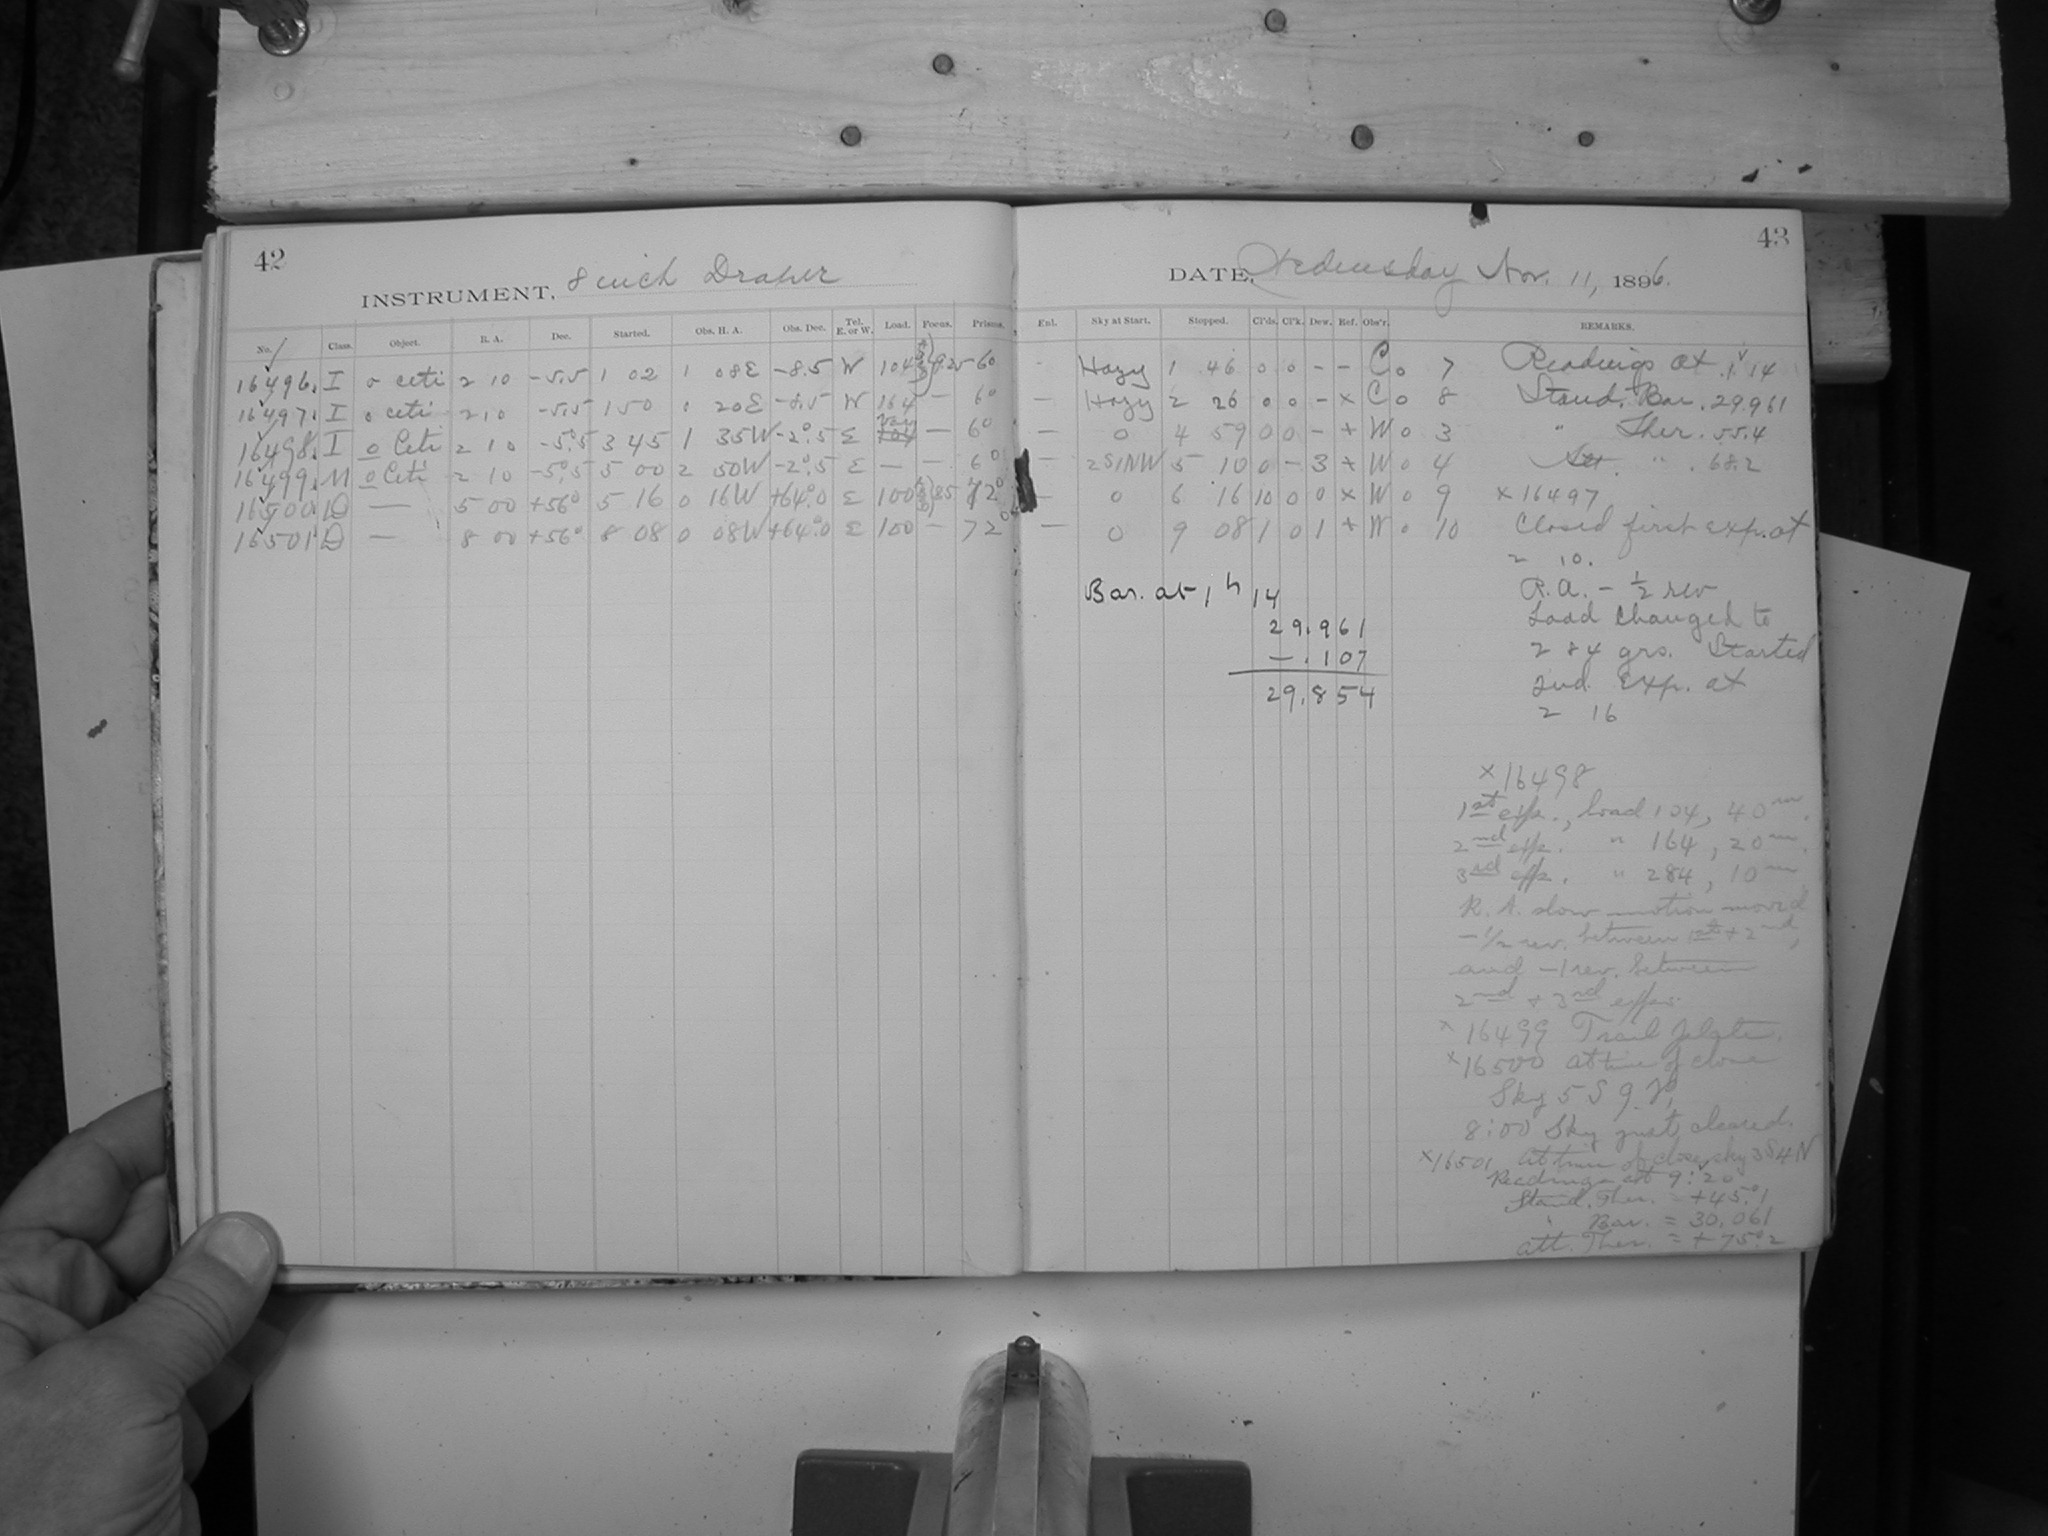 42
INSTRUMENT, 8 inch Draper
No. Class. Object. R. A. Dec. Started. Obs. H. A. Obs. Dec. Tel. E. or W. Load. Focus. Prisms.
16496. I o ceti 2 10 -5.5 1 02 1 08E -8.5 W 104 9.25 60
16497. I o ceti 2 10 -5.5 1 50 0 20E -8.5 W 164 — 60
16498. I o Ceti 2 10 -5°.5 3 45 1 35W -2°.5 E Var 104 — 60
16499. M o Ceti 2 10 -5°.5 5 00 2 50W -2°.5 E — — 60
16500. D — 5 00 +56° 5 16 0 16W +64°.0 E 100 85 72°
16501 D — 8 00 +56° 8 08 0 08W +64°.0 E 100 — 72°
43
DATE, Wednesday Nov. 11, 1896.
Enl. Sky at Start. Stopped. Cl'ds. Cl'k. Dew. Ref. Obs'r. REMARKS.
- Hazy 1 46 0 0 - - C o 7 Readings at 1 14
— Hazy 2 26 0 0 - x C o 8 Stand. Bar. 29.961
— 0 4 59 0 0 - + W o 3 " Ther. 55.4
— 2S1NW 5 10 0 - 3 + W o 4 Att. " . 68.2
— 0 6 16 10 0 0 x W o 9 x 16497
— 0 9 08 1 0 1 + W o 10 Closed first exp. at
2 10.
Bar. at 1 h 14
29.961
- .107
29.854
R.A. - 1/2 rev
Load changed to
284 grs. Started
2nd Exp. at
2 16
x 16498
1st exp., load 104, 40 m.
2nd exp. " 164, 20 m.
3rd exp. " 284, 10 m
R. A. slow motion moved
-1/2 rev. between 1st + 2nd,
and -1 rev. between
2nd + 3rd exps.
x 16499 Trail plate.
x 16500 at time of close
Sky 5 S 9 N,
8:00 Sky just cleared.
x 16501 At time of close, sky 3S4N
Readings at 9:20
Stand. Ther. = +45°.1
" Bar. = 30.061
att. Ther. = + 75°.2